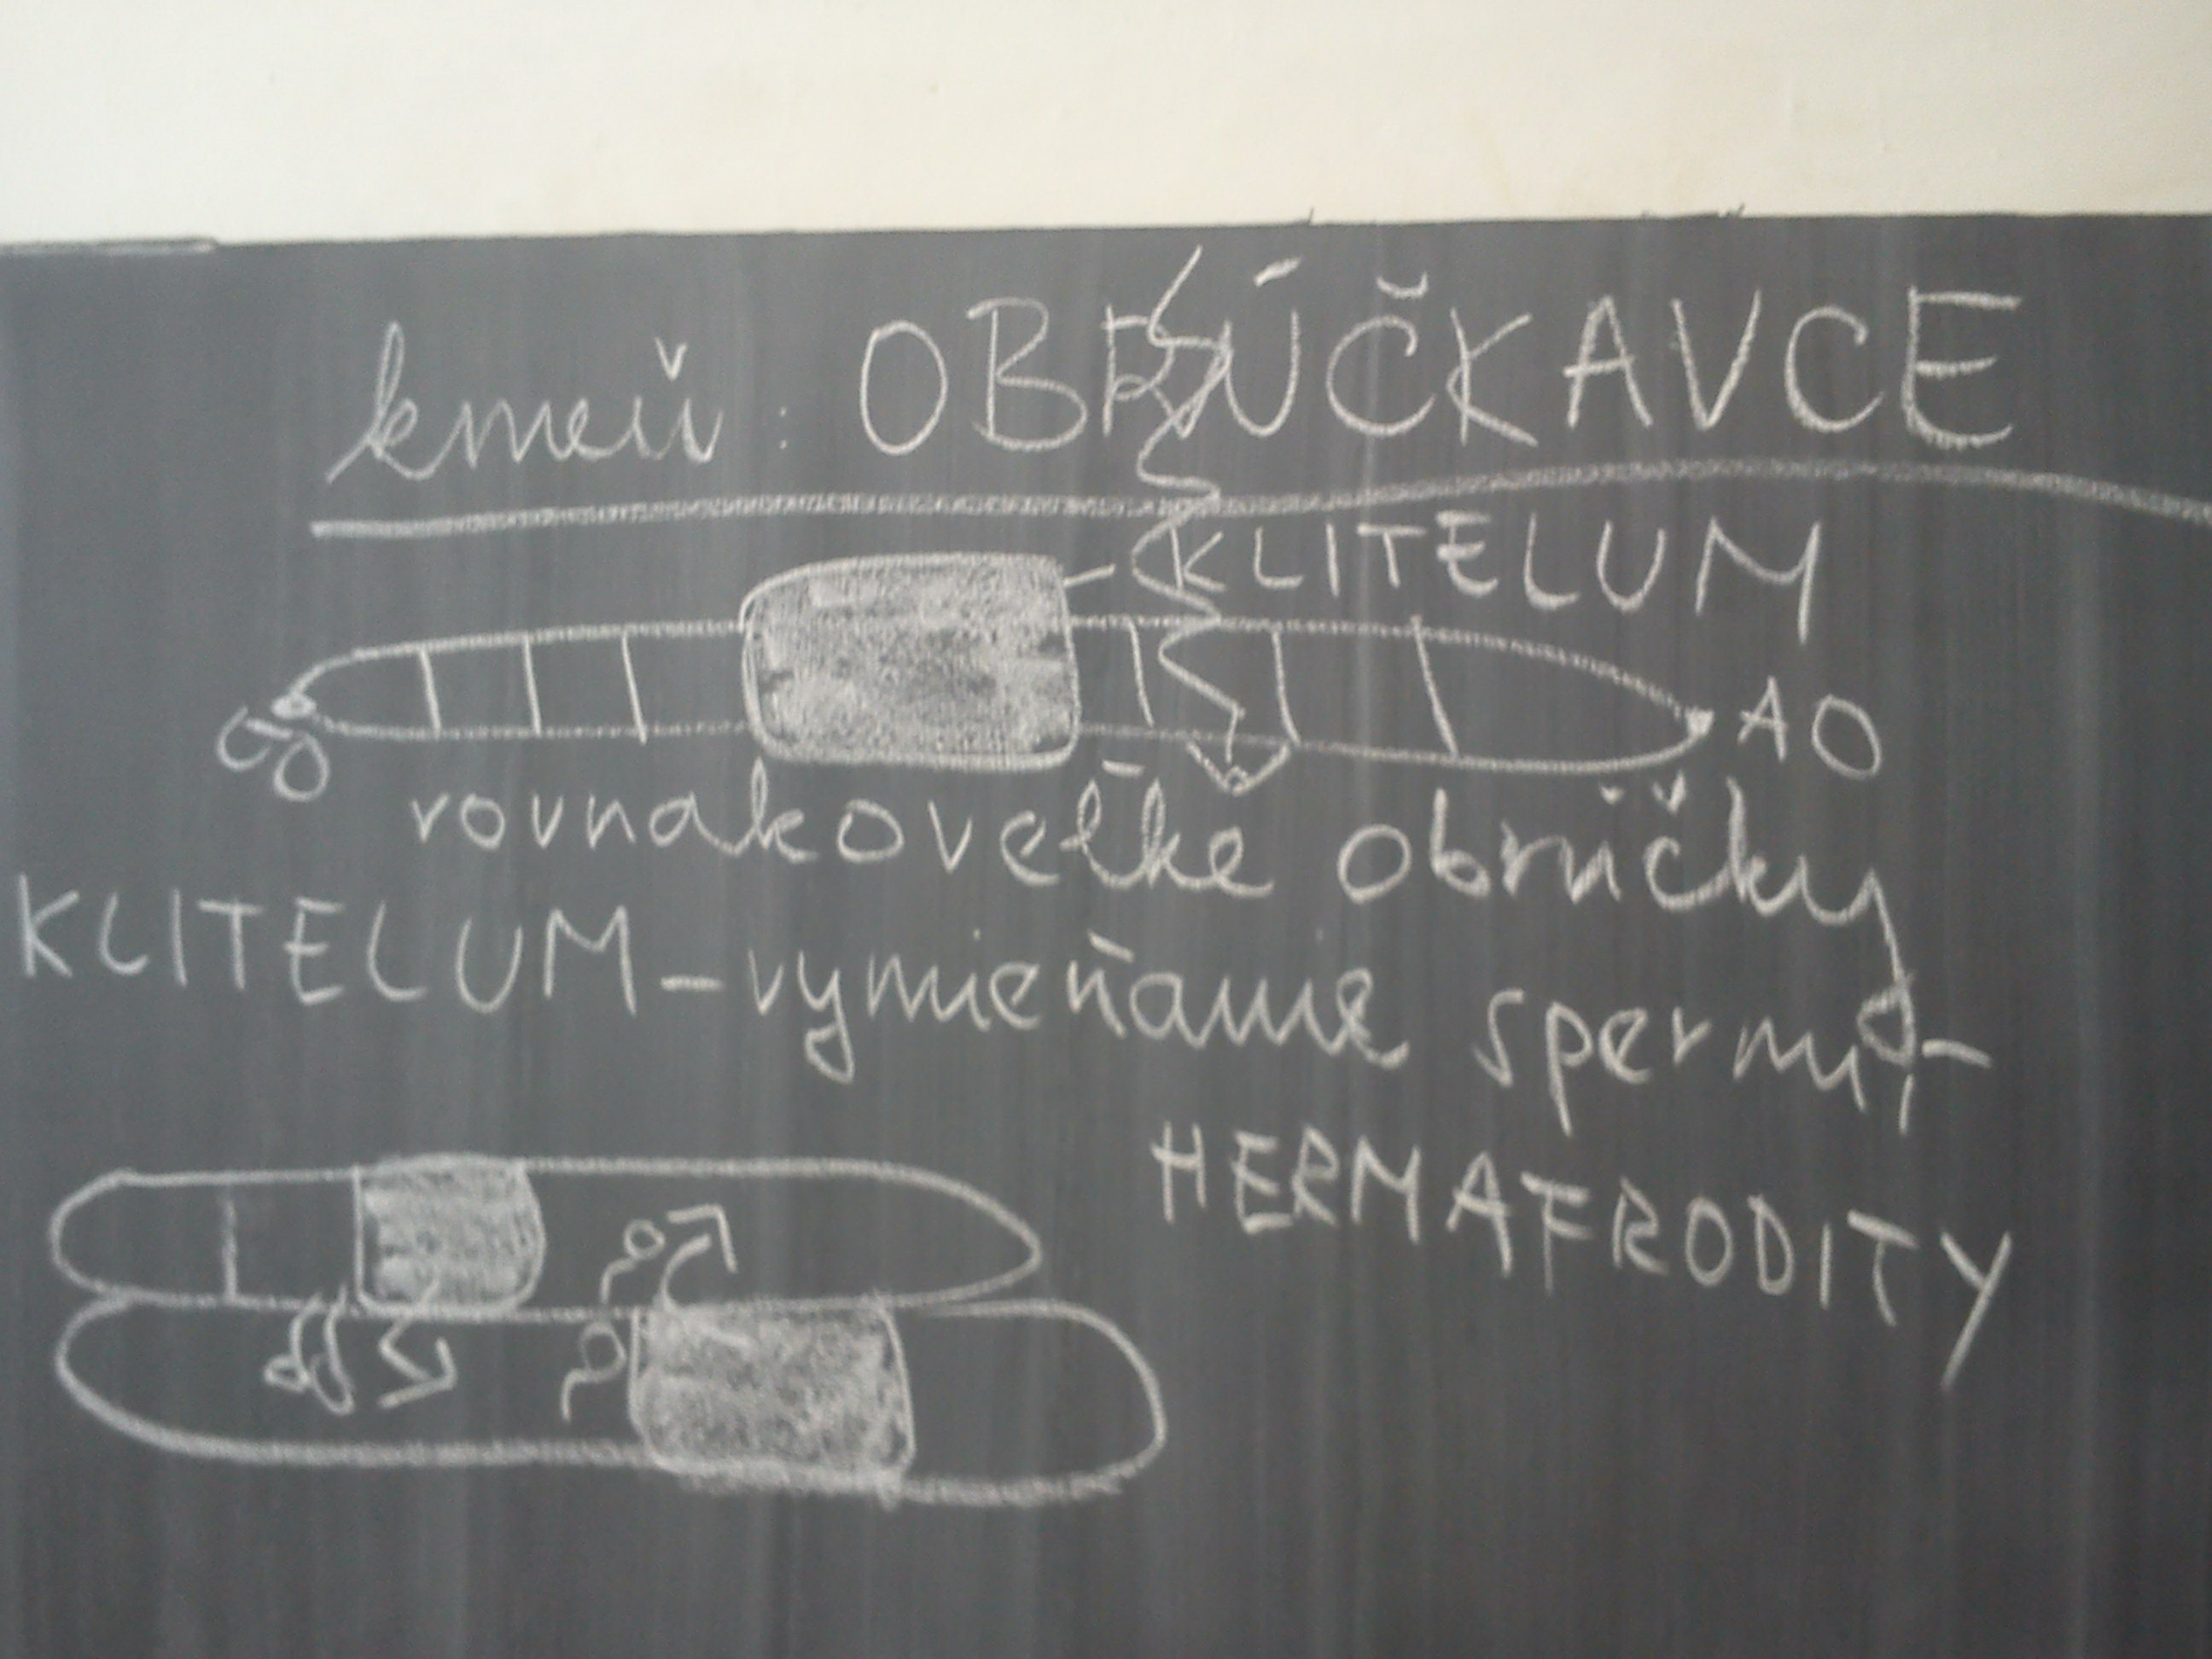 kmeň: OBRÚČKAVCE
KLITELUM
ÚO
AO
rovnakoveľké obrúčky
KLITELUM - vymieňanie spermií -
HERMAFRODITY